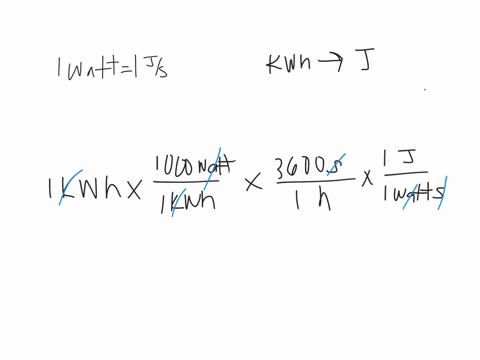 1 Watt = 1 J/s
KWh → J
1KWh × 1000 watt / 1KWh × 3600 s / 1 h × 1 J / 1 watt s